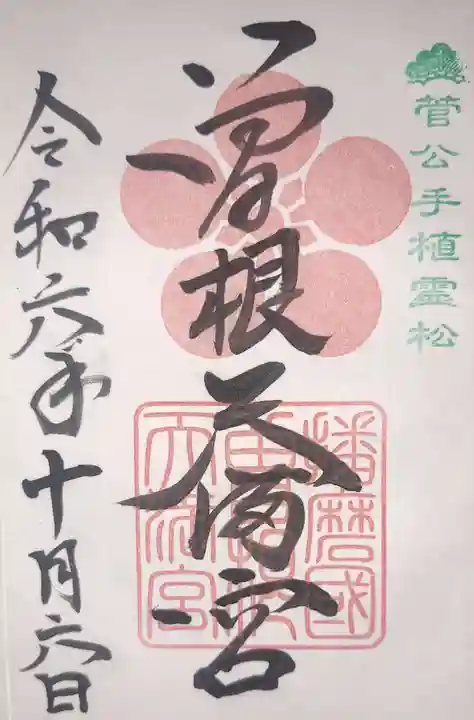 菅公手植霊松
曽根天満宮
播磨國
天滿宮
令和六年十月六日